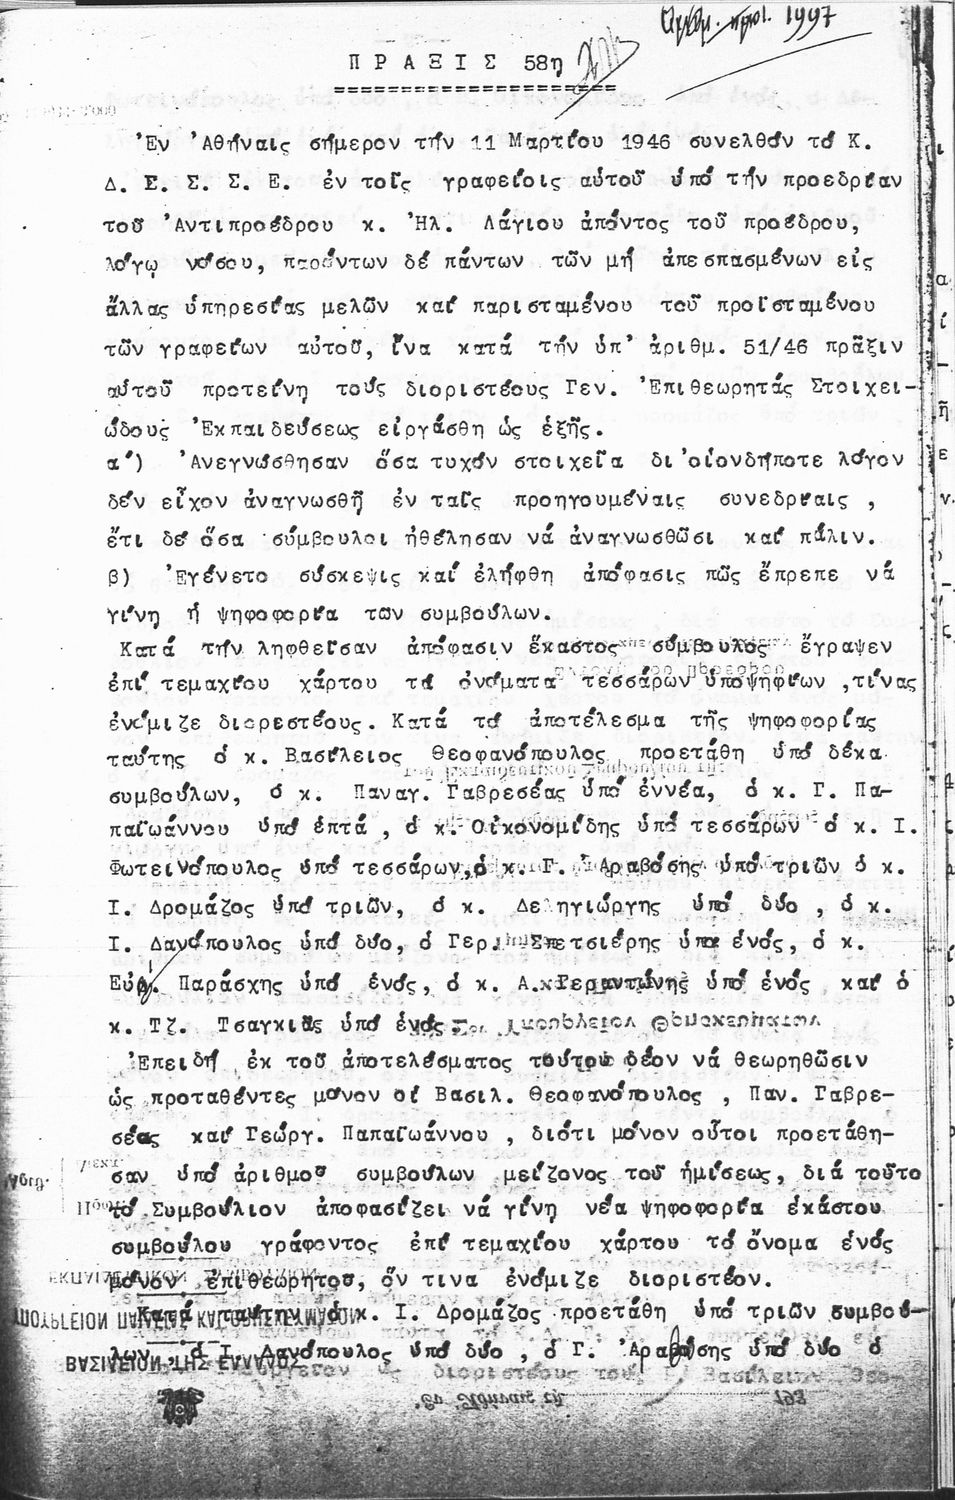 1997
ΠΡΑΞΙΣ 58η
Ἐν Ἀθήναις σήμερον τήν 11 Μαρτίου 1946 συνελθόν τό Κ.
Δ. Σ. Σ. Σ. Ε. ἐν τοῖς γραφείοις αὐτοῦ ὑπό τήν προεδρίαν
τοῦ Ἀντιπροέδρου κ. Ἠλ. Λάγιου ἀπόντος τοῦ προέδρου,
λόγῳ νόσου, παρόντων δέ πάντων τῶν μή ἀπεσπασμένων εἰς
ἄλλας ὑπηρεσίας μελῶν καί παρισταμένου τοῦ προϊσταμένου
τῶν γραφείων αὐτοῦ, ἵνα κατά τήν ὑπ' ἀριθμ. 51/46 πρᾶξιν
αὐτοῦ προτείνη τούς διοριστέους Γεν. Ἐπιθεωρητάς Στοιχει-
ώδους Ἐκπαιδεύσεως εἰργάσθη ὡς ἑξῆς.
α΄) Ἀνεγνώσθησαν ὅσα τυχόν στοιχεῖα δι'οἱονδήποτε λόγον
δέν εἶχον ἀναγνωσθῆ ἐν ταῖς προηγουμέναις συνεδρίαις ,
ἔτι δέ ὅσα σύμβουλοι ἠθέλησαν νά ἀναγνωσθῶσι καί πάλιν.
β) Ἐγένετο σύσκεψις καί ἐλήφθη ἀπόφασις πῶς ἔπρεπε νά
γίνη ἡ ψηφοφορία των συμβούλων.
Κατά τήν ληφθεῖσαν ἀπόφασιν ἕκαστος σύμβουλος ἔγραψεν
ἐπί τεμαχίου χάρτου τά ὀνόματα τεσσάρων ὑποψηφίων ,τίνας
ἐνόμιζε διορεστέους. Κατά τό ἀποτέλεσμα τῆς ψηφοφορίας
ταύτης ὁ κ. Βασίλειος Θεοφανόπουλος προετάθη ὑπό δέκα
συμβούλων, ὁ κ. Παναγ. Γαβρεσέας ὑπό ἐννέα, ὁ κ. Γ. Πα-
παϊωάννου ὑπό ἑπτά , ὁ κ. Οἰκονομίδης ὑπό τεσσάρων ὁ κ. Ι.
Φωτεινόπουλος ὑπό τεσσάρων,ὁ κ. Γ. Ἀραβόσης ὑπό τριῶν ὁ κ.
Ι. Δρομάζος ὑπό τριῶν, ὁ κ. Δεληγιώργης ὑπό δύο , ὁ κ.
Ι. Δανόπουλος ὑπό δύο, ὁ Γερ. Σπετσιέρης ὑπό ἑνός, ὁ κ.
Εὐθ. Παράσχης ὑπό ἑνός, ὁ κ. Α. Γεραντώνης ὑπό ἑνός, καί ὁ
κ. Τζ. Τσαγκιᾶς ὑπό ἑνός
Ἐπειδή ἐκ τοῦ ἀποτελέσματος τούτου δέον νά θεωρηθῶσιν
ὡς προταθέντες μόνον οἱ Βασιλ. Θεοφανόπουλος , Παν. Γαβρε-
σέας καί Γεώργ. Παπαϊωάννου , διότι μόνον οὗτοι προετάθη-
σαν ὑπό ἀριθμοῦ συμβούλων μείζονος τοῦ ἡμίσεως, διά τοῦτο
τό Συμβούλιον ἀποφασίζει νά γίνη νέα ψηφοφορία ἑκάστου
συμβούλου γράφοντος ἐπί τεμαχίου χάρτου τό ὄνομα ἑνός
μόνον ἐπιθεωρήτου, ὅν τινα ἐνόμιζε διοριστέον.
Κατά ταύτην ὁ κ. Ι. Δρομάζος προετάθη ὑπό τριῶν συμβού-
λων, ὁ Ι. Δανόπουλος ὑπό δύο , ὁ Γ. Ἀραβόσης ὑπό δύο ὁ